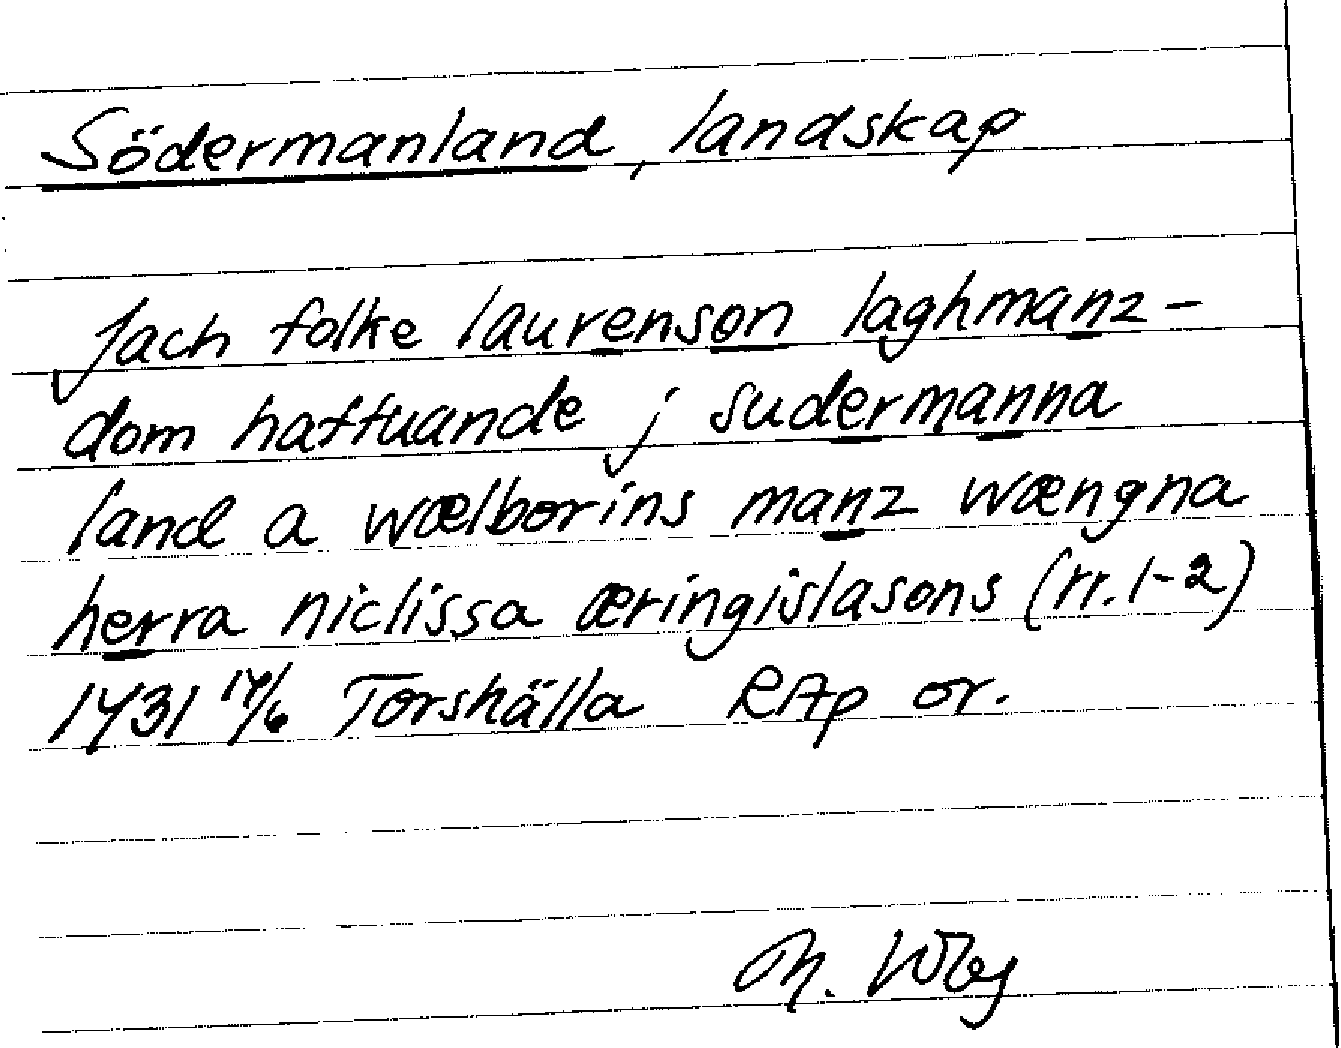 Södermanland, landskap
Jach folke laurenson laghmanz-
dom haffuande j sudermanna
land a wælborins manz wængna
herra niclissa æringislasons (rr. 1-2)
1431 14/6 Torshälla RAp or.
M. Wbg